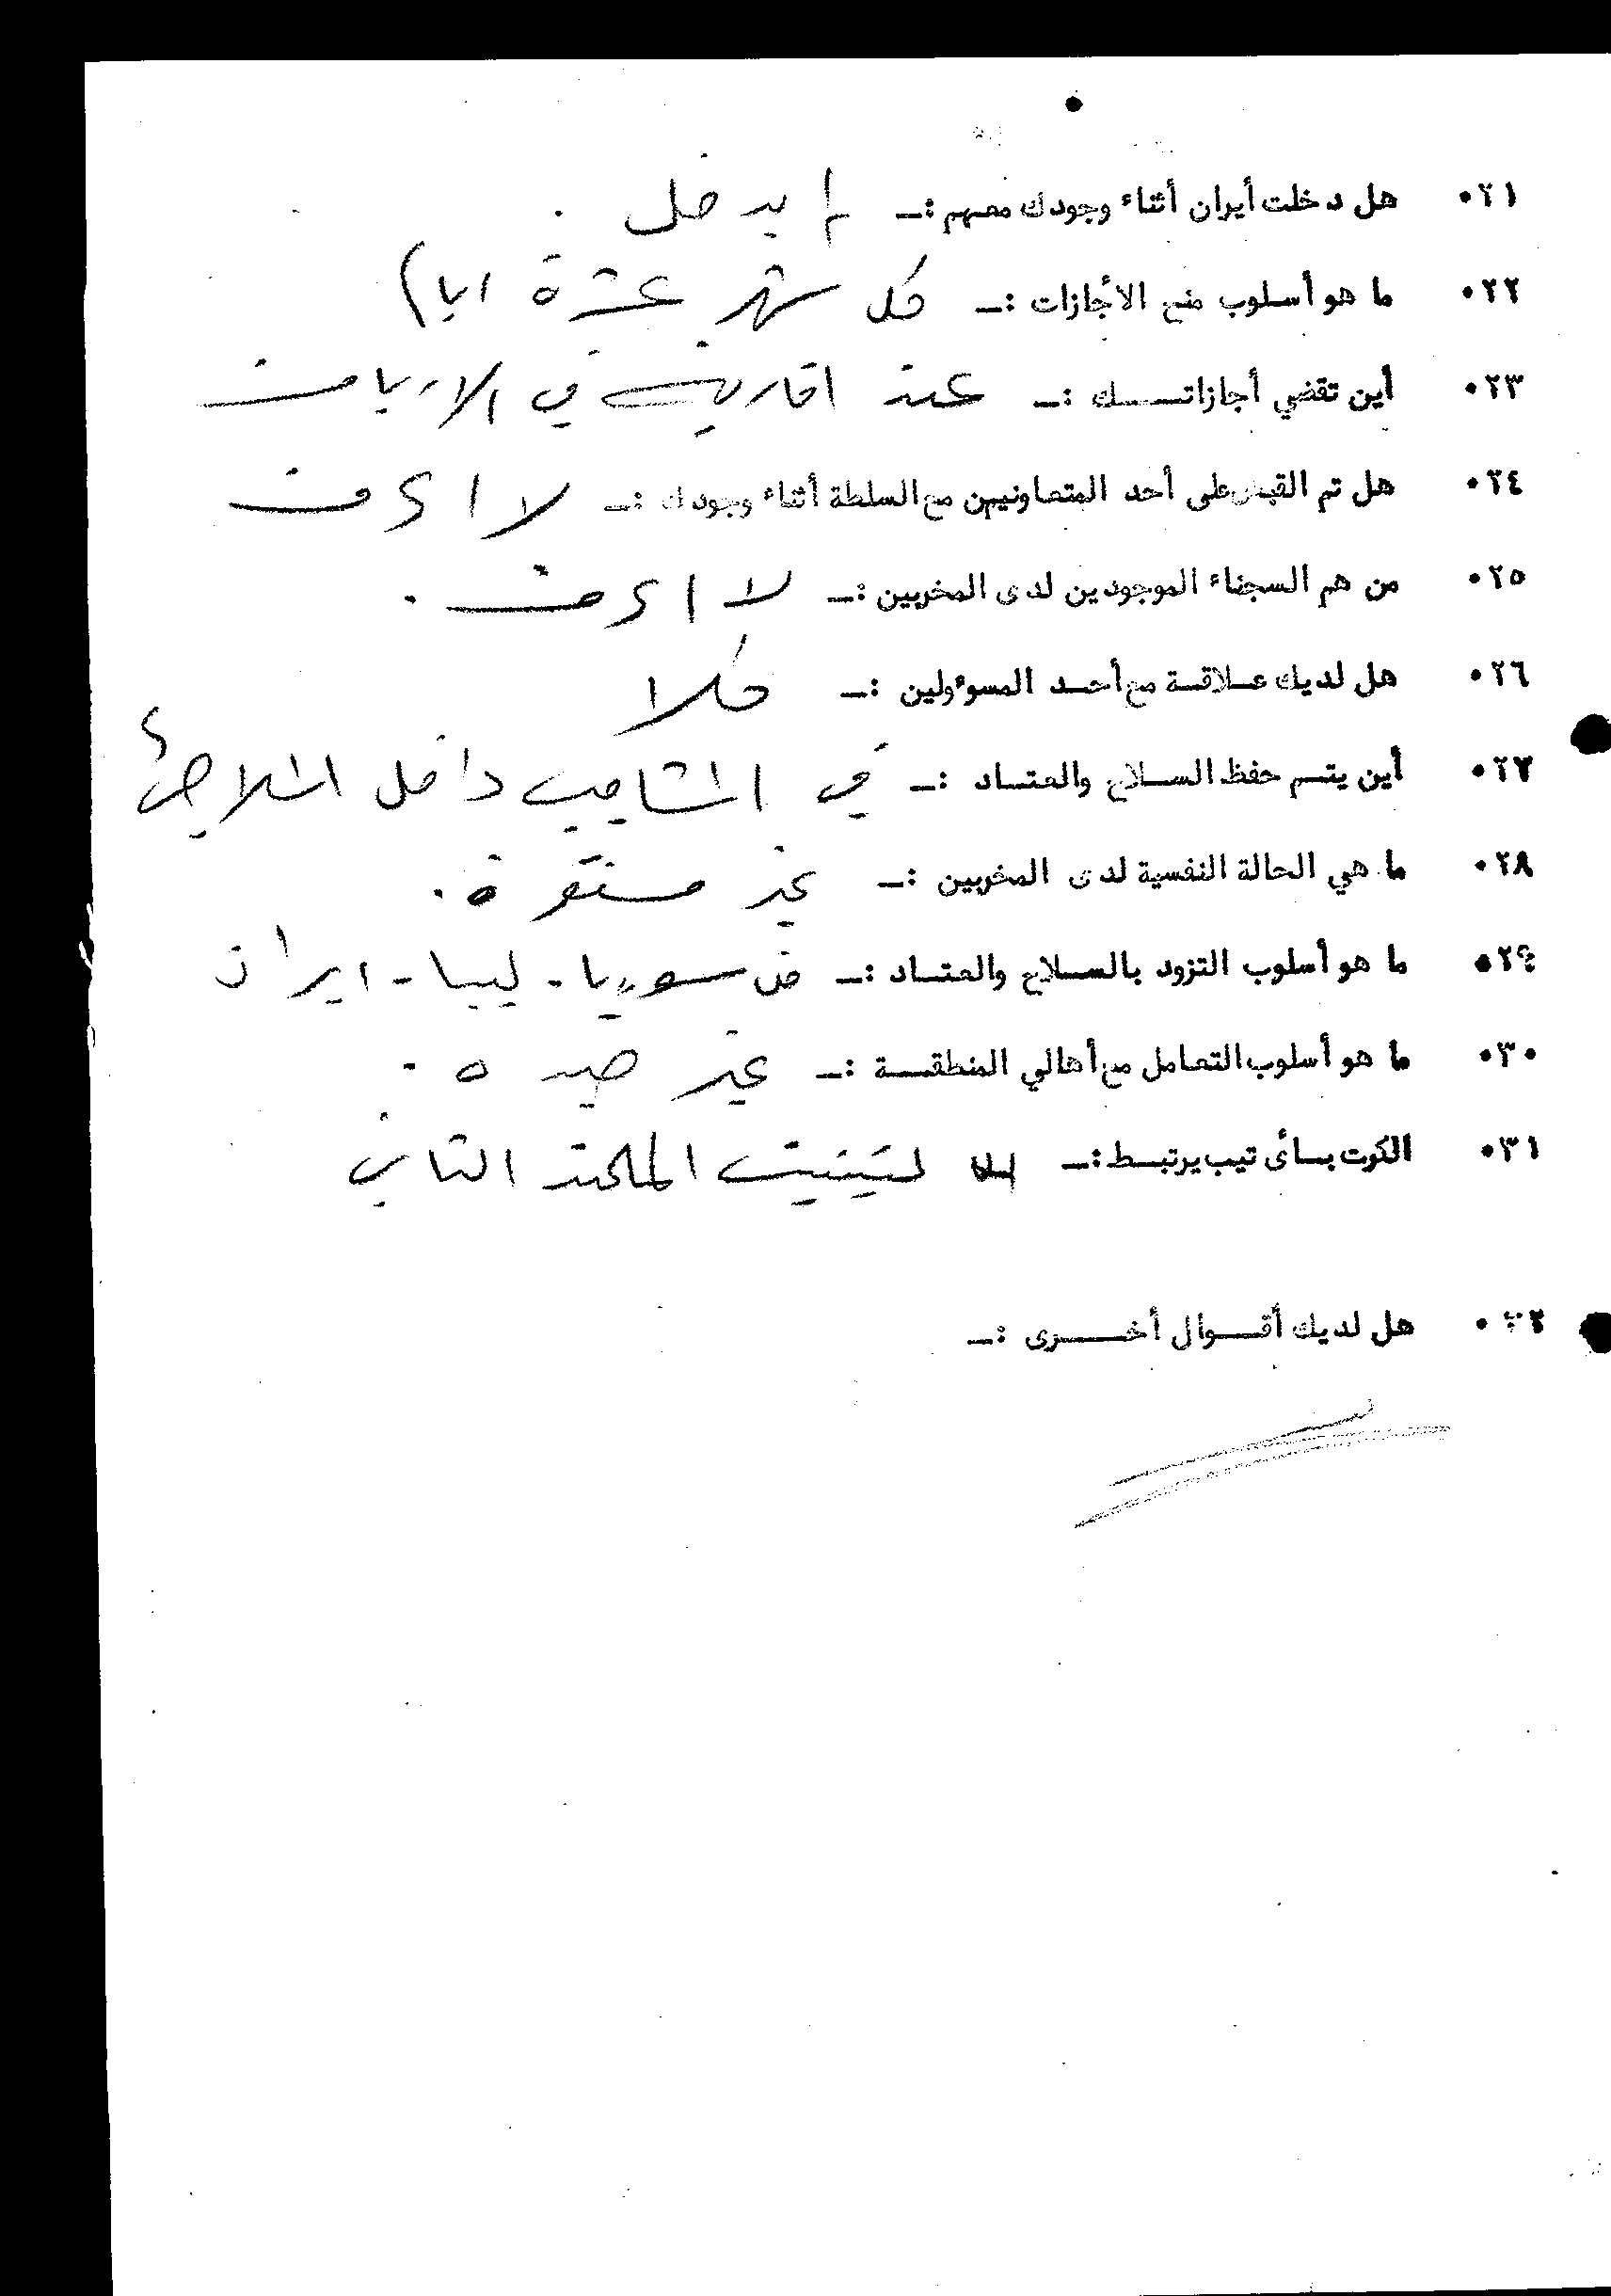 ٠٢١ هل دخلت أيران أثناء وجودك معهم :ـ لم يدخل .
٠٢٢ ما هو أسلوب منح الأجازات :ـ كل شهر عشرة ايام
٠٢٣ أين تقضي أجازاتـــك :ـ عند اقاربي في الارياف
٠٢٤ هل تم القبض على أحد المتعاونيين مع السلطة أثناء وجودك :ـ لا اعرف
٠٢٥ من هم السجناء الموجودين لدى المخربين :ـ لا اعرف .
٠٢٦ هل لديك عـلاقـة مع أحـد المسوءولين :ـ كلا
٠٢٧ أين يتـم حفظ السـلاح والعتـاد :ـ في المشاجب داخل الملاجئ
٠٢٨ ما هي الحالة النفسية لدى المخربين :ـ غير مستقرة .
٠٢٩ ما هو أسلوب التزود بالسـلاح والعتـاد :ـ من سوريا - ليبيا - ايران
٠٣٠ ما هو أسلوب التعامل مع أهالي المنطقـة :ـ غير جيدة .
٠٣١ الكوت بـأى تيب يرتبـط :ـ الملحق الثاني
٠٣٢ هل لديك أقـوال أخـرى :ـ